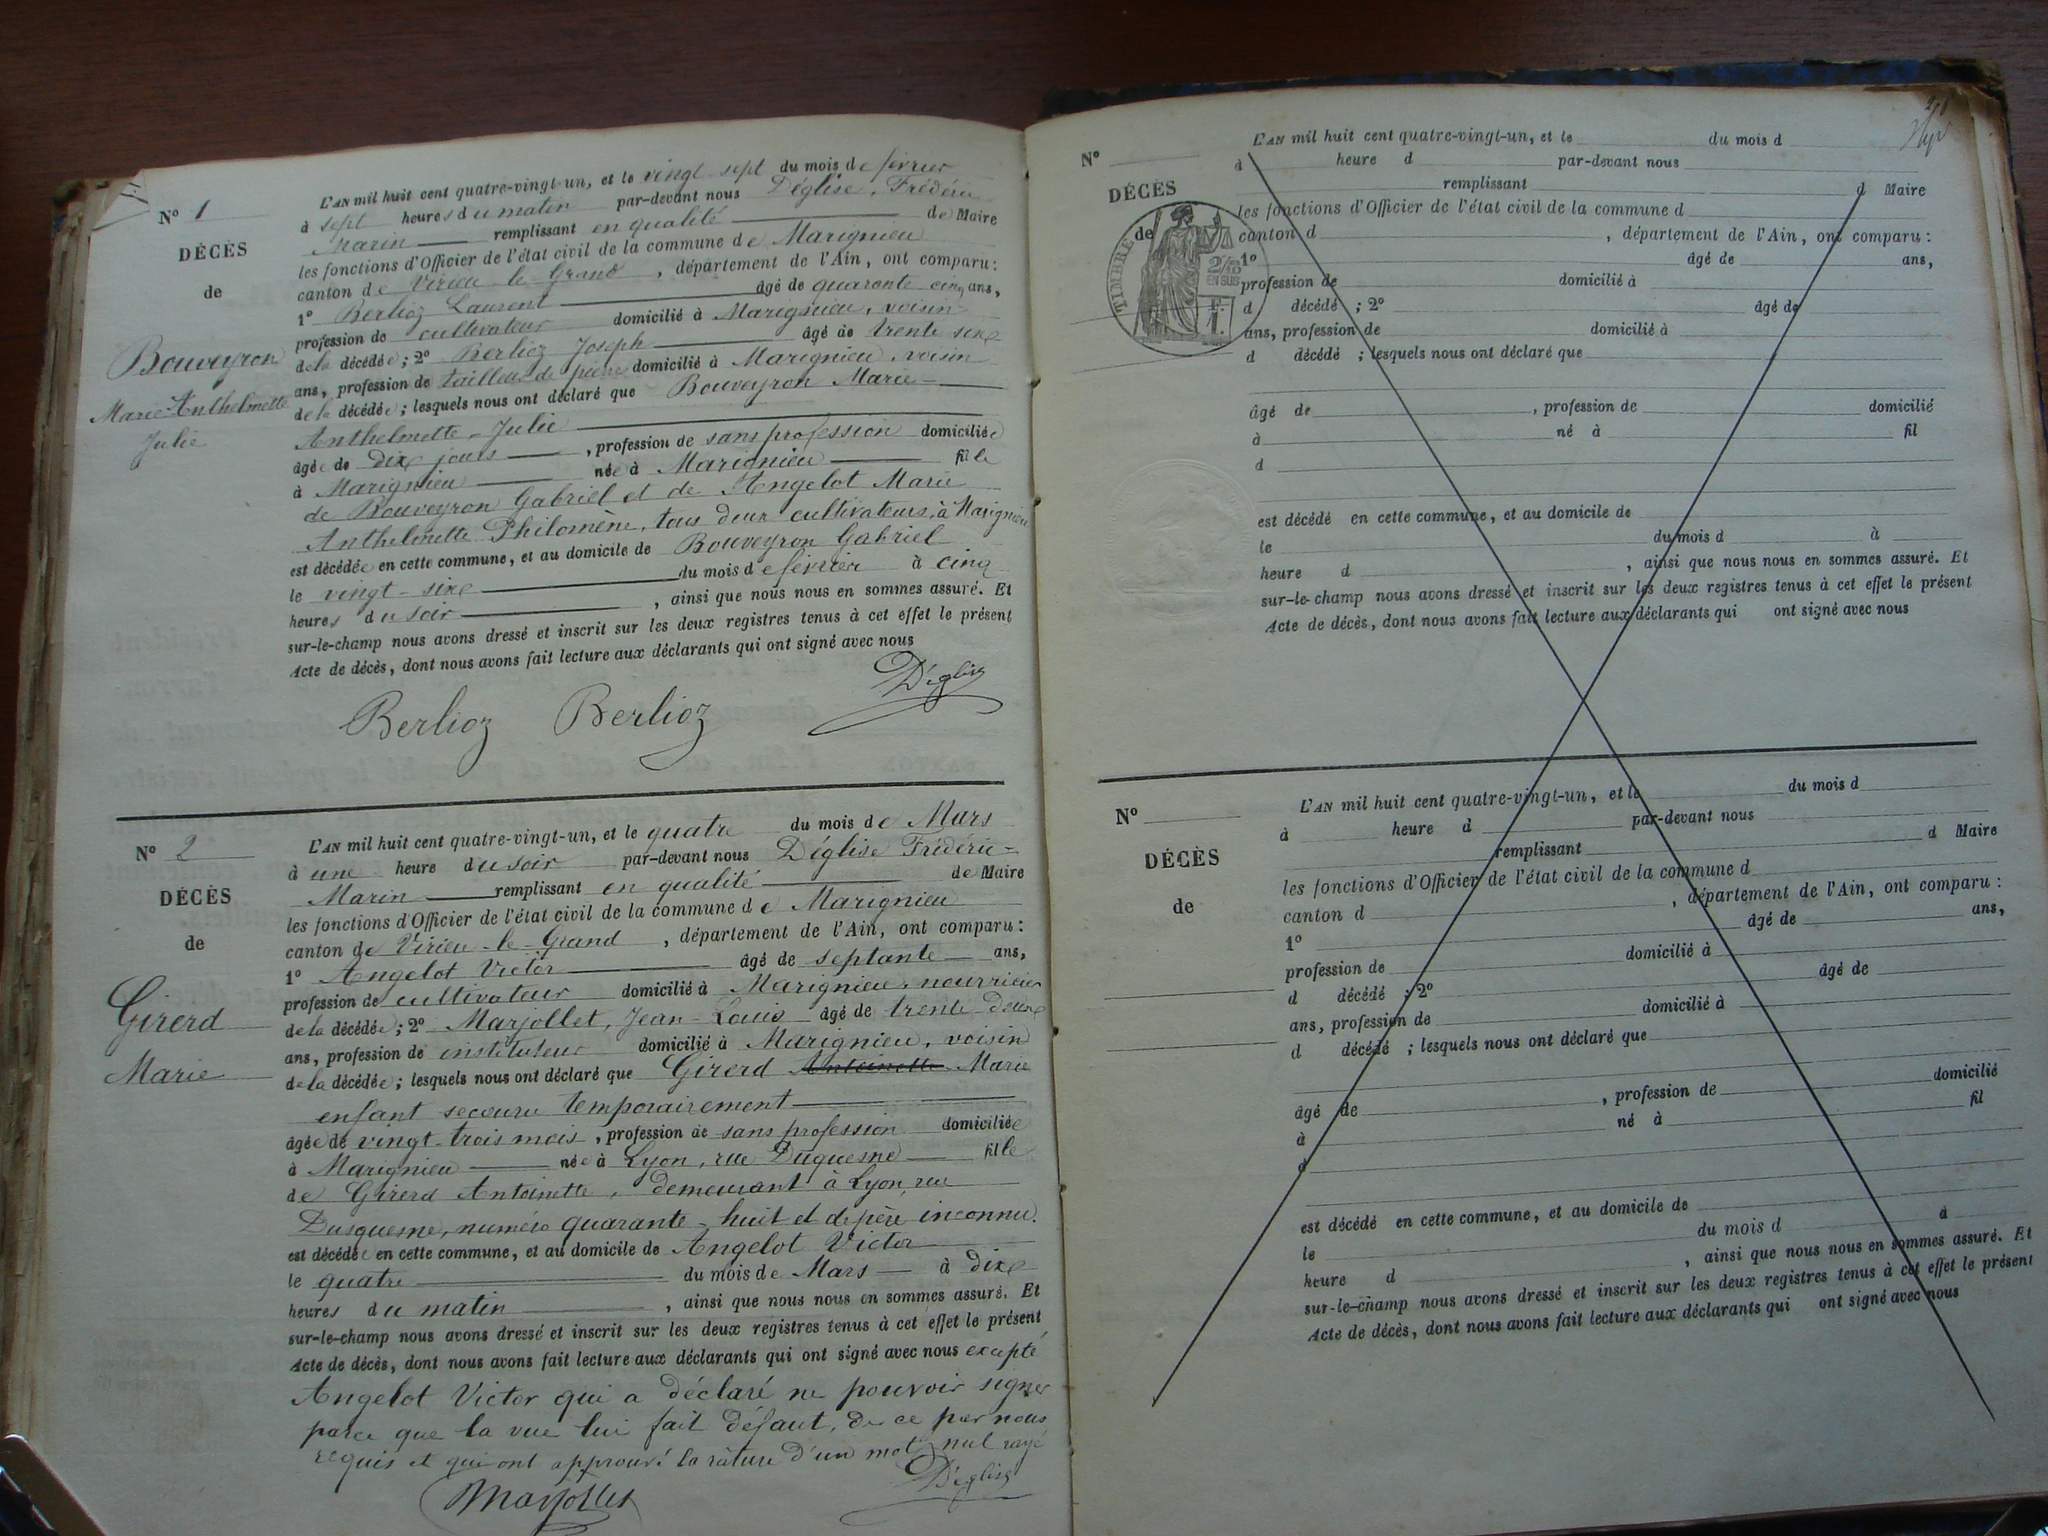 N° 1
DÉCÈS
de
Bouveyron
Marie Anthelmette
Julie
L'AN mil huit cent quatre-vingt-un, et le vingt-sept du mois de février
à sept heures du matin par-devant nous Déglise, Frédéric
Marin remplissant en qualité de Maire
les fonctions d'Officier de l'état civil de la commune de Marignieu
canton de Virieu-le-Grand, département de l'Ain, ont comparu:
1° Berlioz Laurent âgé de quarante cinq ans,
profession de cultivateur domicilié à Marignieu, voisin
de la décédée; 2° Berlioz Joseph âgé de trente six
ans, profession de tailleur de pierre domicilié à Marignieu, voisin
de la décédée; lesquels nous ont déclaré que Bouveyron Marie-
Anthelmette-Julie
âgée de dix jours, profession de sans profession domiciliée
à Marignieu née à Marignieu fille
de Bouveyron Gabriel et de Angelot Marie
Anthelmette Philomène, tous deux cultivateurs, à Marignieu
est décédée en cette commune, et au domicile de Bouveyron Gabriel
le vingt-six du mois de février à cinq
heures du soir, ainsi que nous nous en sommes assuré. Et
sur-le-champ nous avons dressé et inscrit sur les deux registres tenus à cet effet le présent
Acte de décès, dont nous avons fait lecture aux déclarants qui ont signé avec nous
Berlioz Berlioz Déglise
N° 2
DÉCÈS
de
Girerd
Marie
L'AN mil huit cent quatre-vingt-un, et le quatre du mois de Mars
à une heure du soir par-devant nous Déglise Frédéric-
Marin remplissant en qualité de Maire
les fonctions d'Officier de l'état civil de la commune de Marignieu
canton de Virieu-le-Grand, département de l'Ain, ont comparu:
1° Angelot Victor âgé de septante ans,
profession de cultivateur domicilié à Marignieu, nourricier
de la décédée; 2° Marjollet, Jean-Louis âgé de trente-deux
ans, profession de instituteur domicilié à Marignieu, voisin
de la décédée; lesquels nous ont déclaré que Girerd Antoinette Marie
enfant secouru temporairement
âgée de vingt-trois mois, profession de sans profession domiciliée
à Marignieu née à Lyon, rue Duquesne fille
de Girerd Antoinette, demeurant à Lyon, rue
Dusquesne, numéro quarante-huit et de père inconnu.
est décédée en cette commune, et au domicile de Angelot Victor
le quatre du mois de Mars à dix
heures du matin, ainsi que nous nous en sommes assuré. Et
sur-le-champ nous avons dressé et inscrit sur les deux registres tenus à cet effet le présent
Acte de décès, dont nous avons fait lecture aux déclarants qui ont signé avec nous excepté
Angelot Victor qui a déclaré ne pouvoir signer
parce que la vue lui fait défaut, de ce par nous
requis et qui ont approuvé la râture d'un mot nul rayé
Marjollet Déglise
N°
DÉCÈS
de
TIMBRE
2/10
EN SUS
F.
1.
L'AN mil huit cent quatre-vingt-un, et le du mois d
à heure d par-devant nous
remplissant d Maire
les fonctions d'Officier de l'état civil de la commune d
canton d , département de l'Ain, ont comparu:
1° âgé de ans,
profession de domicilié à
d décédé ; 2° âgé de
ans, profession de domicilié à
d décédé ; lesquels nous ont déclaré que
âgé de , profession de domicilié
à né à fil
d
est décédé en cette commune, et au domicile de
le du mois d à
heure d , ainsi que nous nous en sommes assuré. Et
sur-le-champ nous avons dressé et inscrit sur les deux registres tenus à cet effet le présent
Acte de décès, dont nous avons fait lecture aux déclarants qui ont signé avec nous
N°
DÉCÈS
de
L'AN mil huit cent quatre-vingt-un, et le du mois d
à heure d par-devant nous
remplissant d Maire
les fonctions d'Officier de l'état civil de la commune d
canton d , département de l'Ain, ont comparu:
1° âgé de ans,
profession de domicilié à
d décédé ; 2° âgé de
ans, profession de domicilié à
d décédé ; lesquels nous ont déclaré que
âgé de , profession de domicilié
à né à fil
d
est décédé en cette commune, et au domicile de
le du mois d à
heure d , ainsi que nous nous en sommes assuré. Et
sur-le-champ nous avons dressé et inscrit sur les deux registres tenus à cet effet le présent
Acte de décès, dont nous avons fait lecture aux déclarants qui ont signé avec nous